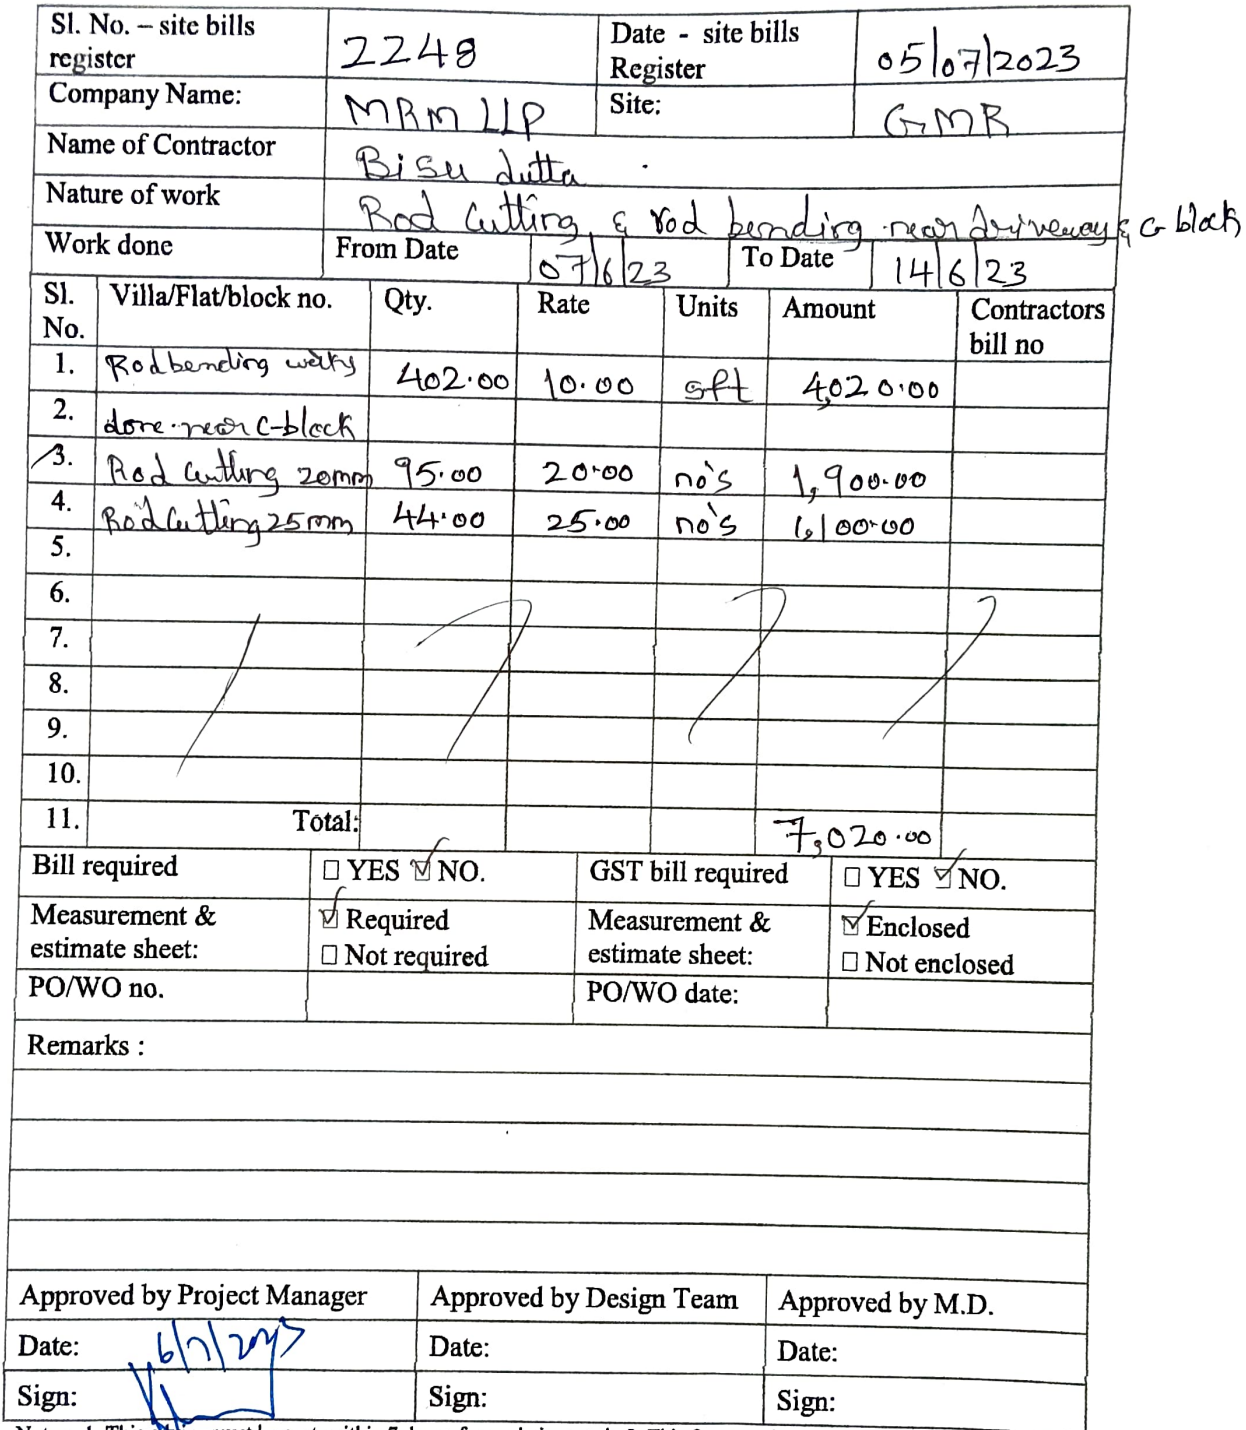 Sl. No. – site bills register 2248 Date - site bills Register 05/07/2023
Company Name: MRM LLP Site: GMR
Name of Contractor Bisu dutta
Nature of work Rod cutting & rod bending near driveway & C block
Work done From Date 07/6/23 To Date 14/6/23
Sl. No. Villa/Flat/block no. Qty. Rate Units Amount Contractors bill no
1. Rod bending 402.00 10.00 sft 4,020.00
2. done near C-block
3. Rod cutting 20mm 95.00 20.00 no's 1,900.00
4. Rod cutting 25mm 44.00 25.00 no's 1,100.00
5.
6.
7.
8.
9.
10.
11. Total: 7,020.00
Bill required ☐ YES ☑ NO. GST bill required ☐ YES ☑ NO.
Measurement & estimate sheet: ☑ Required Measurement & estimate sheet: ☑ Enclosed
☐ Not required ☐ Not enclosed
PO/WO no. PO/WO date:
Remarks :
Approved by Project Manager Approved by Design Team Approved by M.D.
Date: 6/7/2023 Date: Date:
Sign: Sign: Sign: